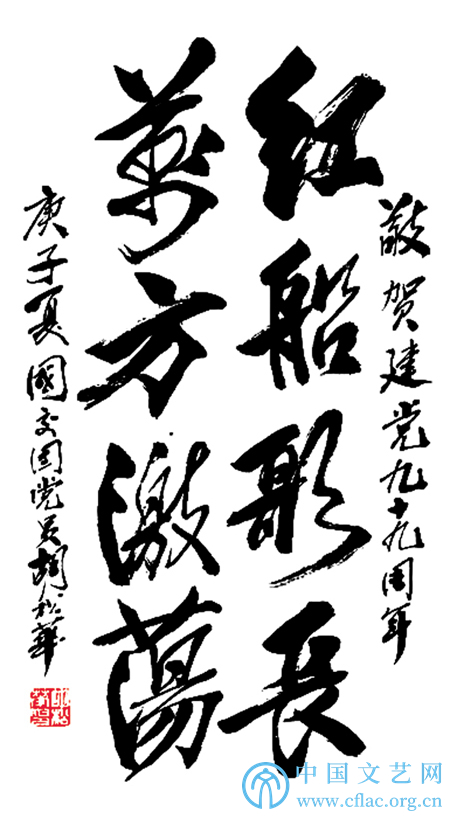 敬贺建党九十九周年
红船影長
萬方激蕩
庚子夏國交团党员胡松華
中国文艺网
www.cflac.org.cn